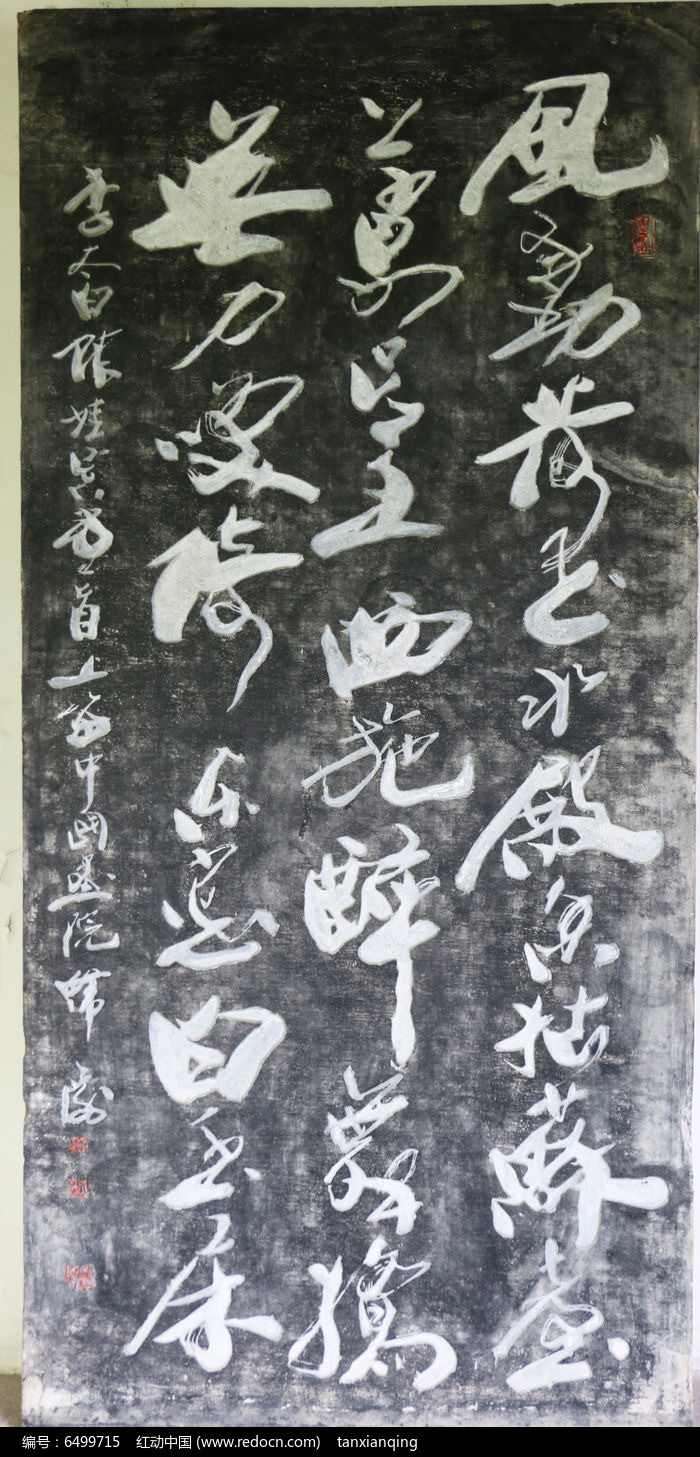 風動荷花水殿香姑蘇臺
上宴吳王西施醉舞嬌
無力笑倚東窗白玉床
李太白 娃 首上海中國畫院韓敏
编号：6499715 红动中国 (www.redocn.com) tanxianqing